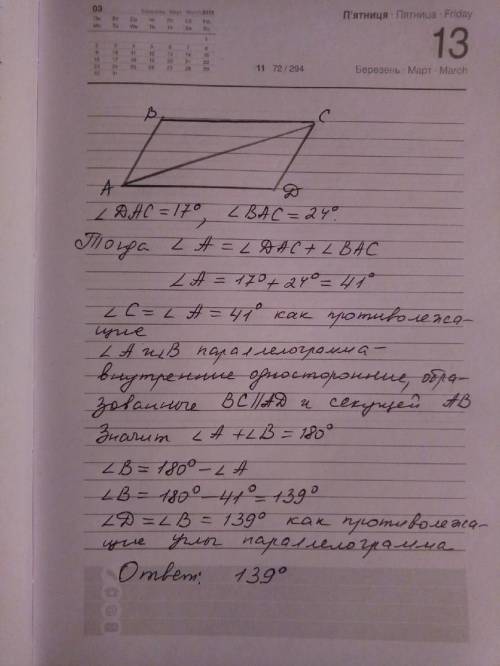 03 Березень Март March
П'ятниця · Пятница · Friday
13
11 72 / 294
Березень · Март · March
B C
A D
∠DAC = 17°, ∠BAC = 24°.
Тогда ∠A = ∠DAC + ∠BAC
∠A = 17° + 24° = 41°
∠C = ∠A = 41° как противолежа-
щие
∠A и ∠B параллелограмма -
внутренние односторонние, обра-
зованные BC||AD и секущей AB
Значит ∠A + ∠B = 180°
∠B = 180° - ∠A
∠B = 180° - 41° = 139°
∠D = ∠B = 139° как противолежа-
щие углы параллелограмма
Ответ: 139°